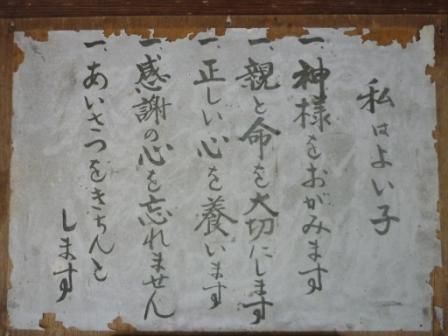 私はよい子
一、神様をおがみます
一、親と命を大切にします
一、正しい心を養います
一、感謝の心を忘れません
一、あいさつをきちんと
します